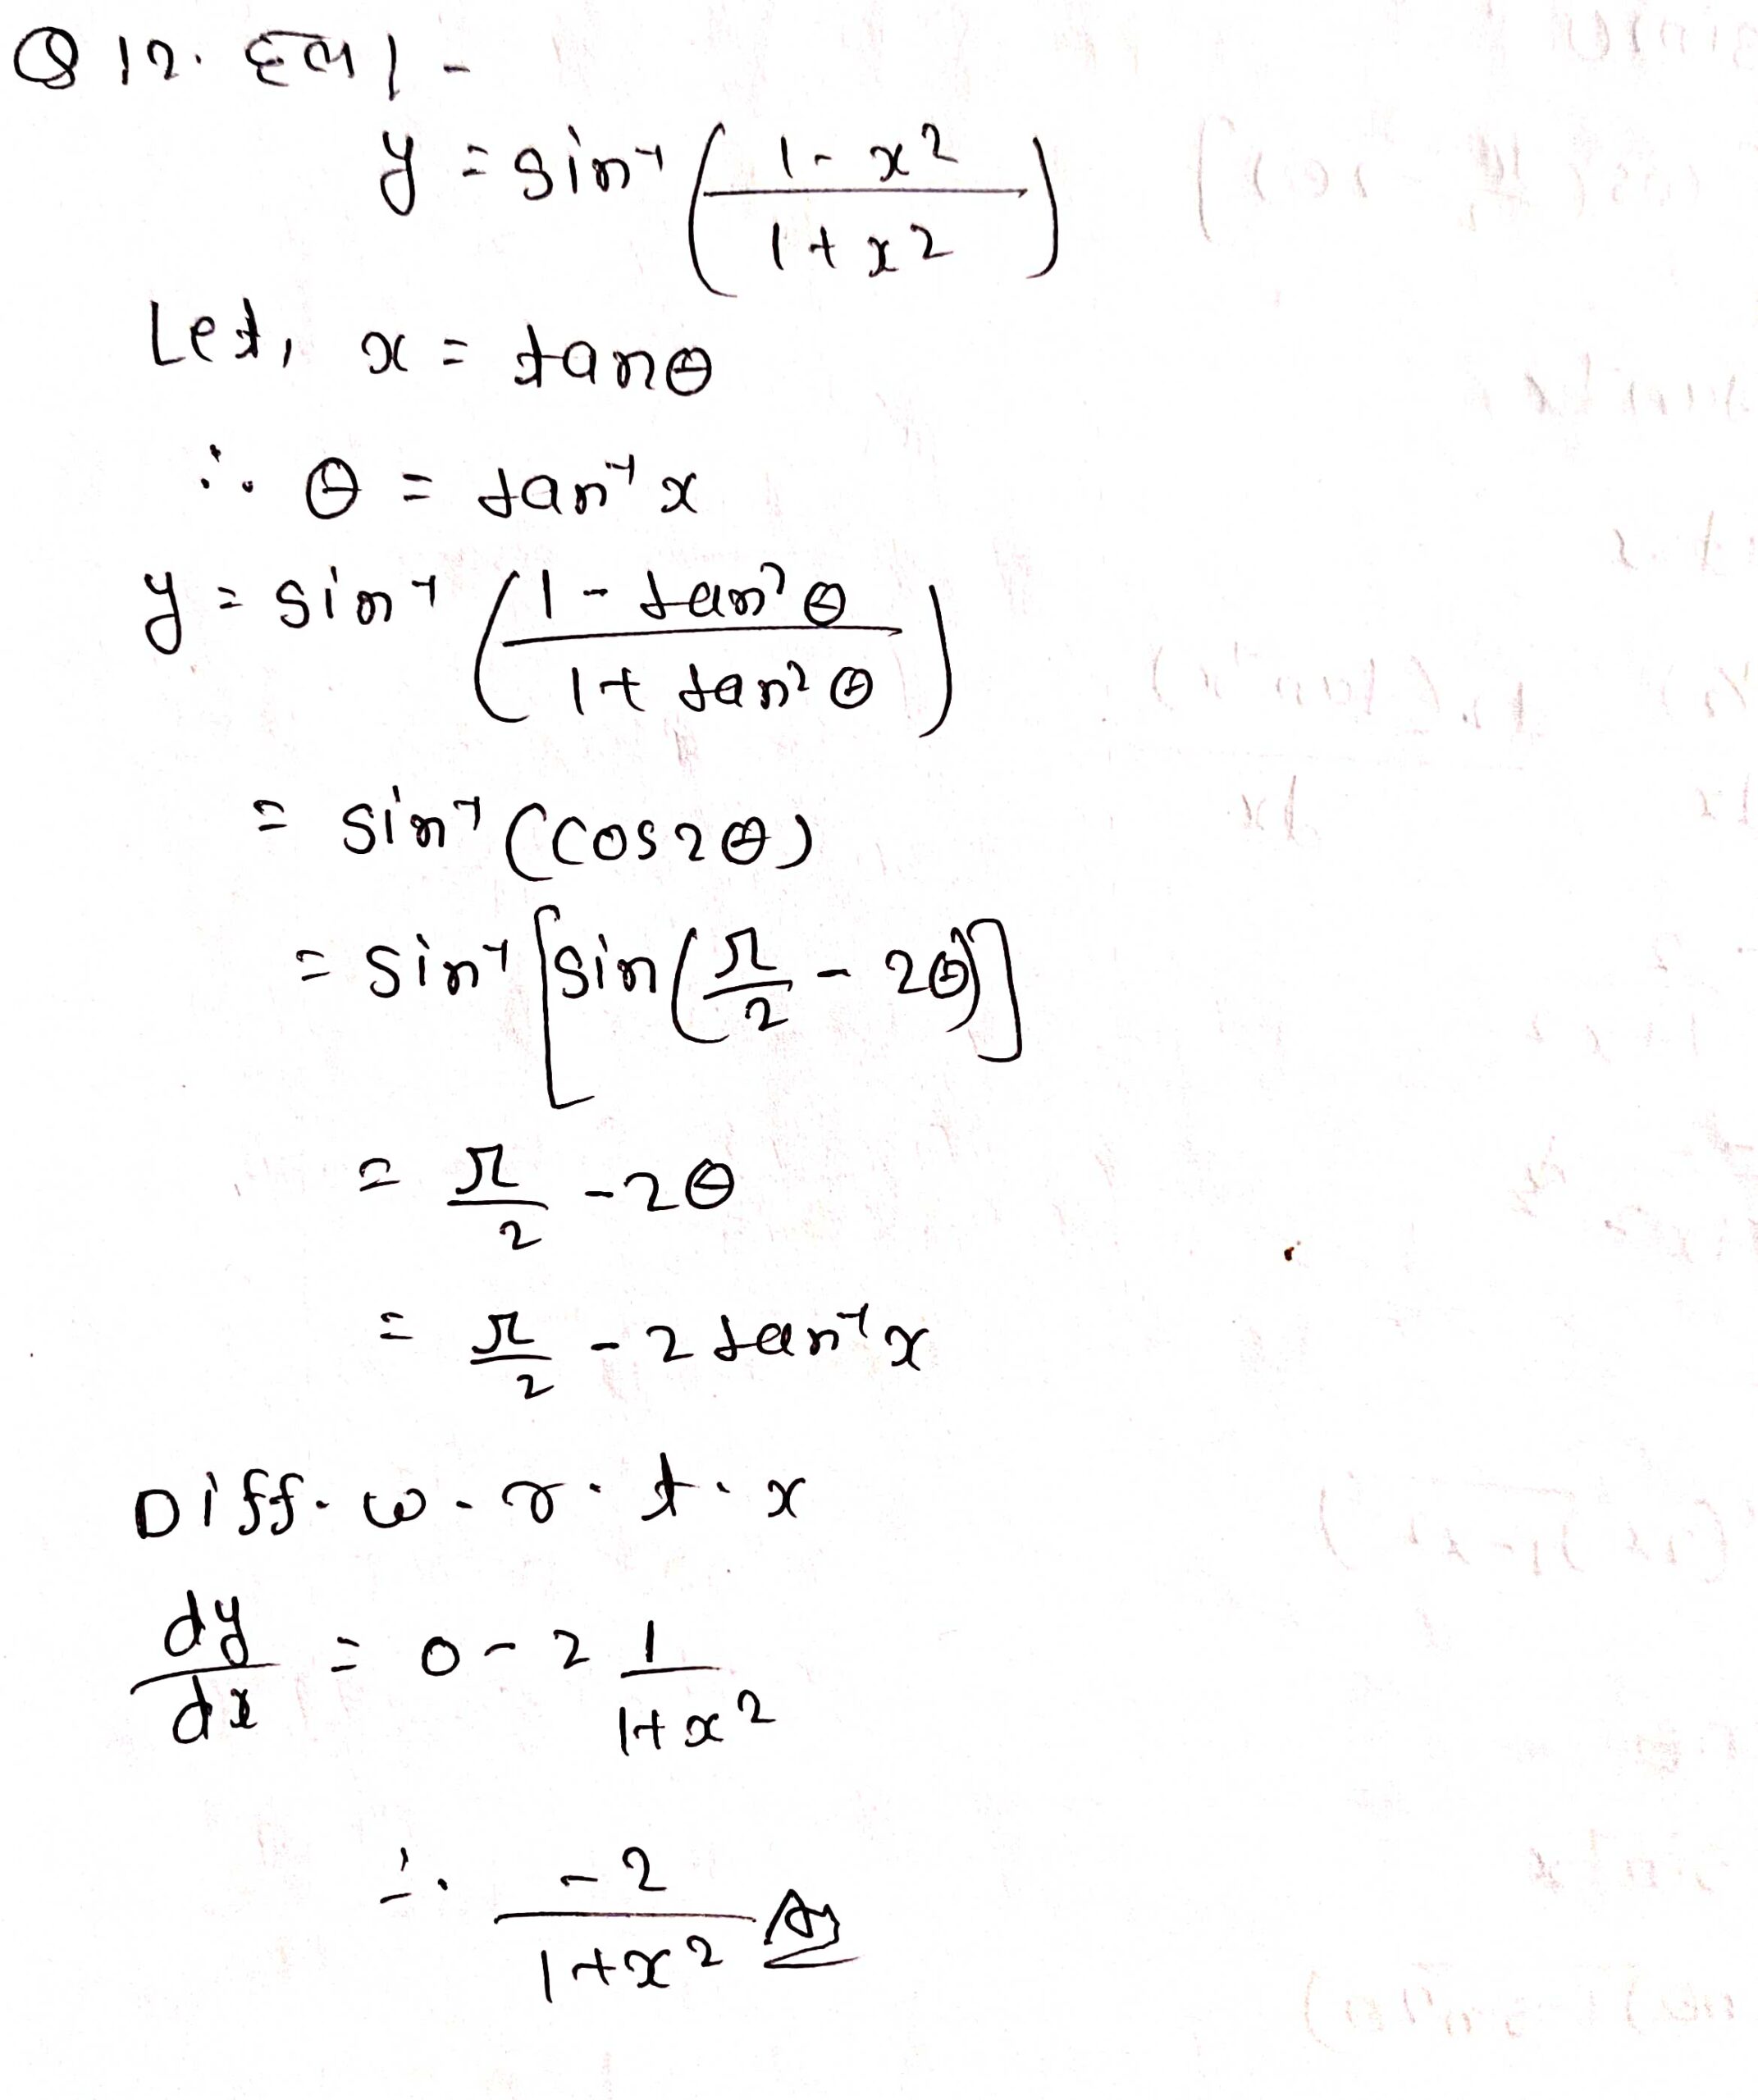 Q 12. हल। -
y = sin⁻¹ ( (1 - x²) / (1 + x²) )
Let, x = tanθ
∴ θ = tan⁻¹ x
y = sin⁻¹ ( (1 - tan²θ) / (1 + tan²θ) )
= sin⁻¹ (cos2θ)
= sin⁻¹ [sin(π/2 - 2θ)]
= π/2 - 2θ
= π/2 - 2 tan⁻¹ x
Diff. w. r. t. x
dy/dx = 0 - 2 1/(1+x²)
∴ -2/(1+x²) Ans